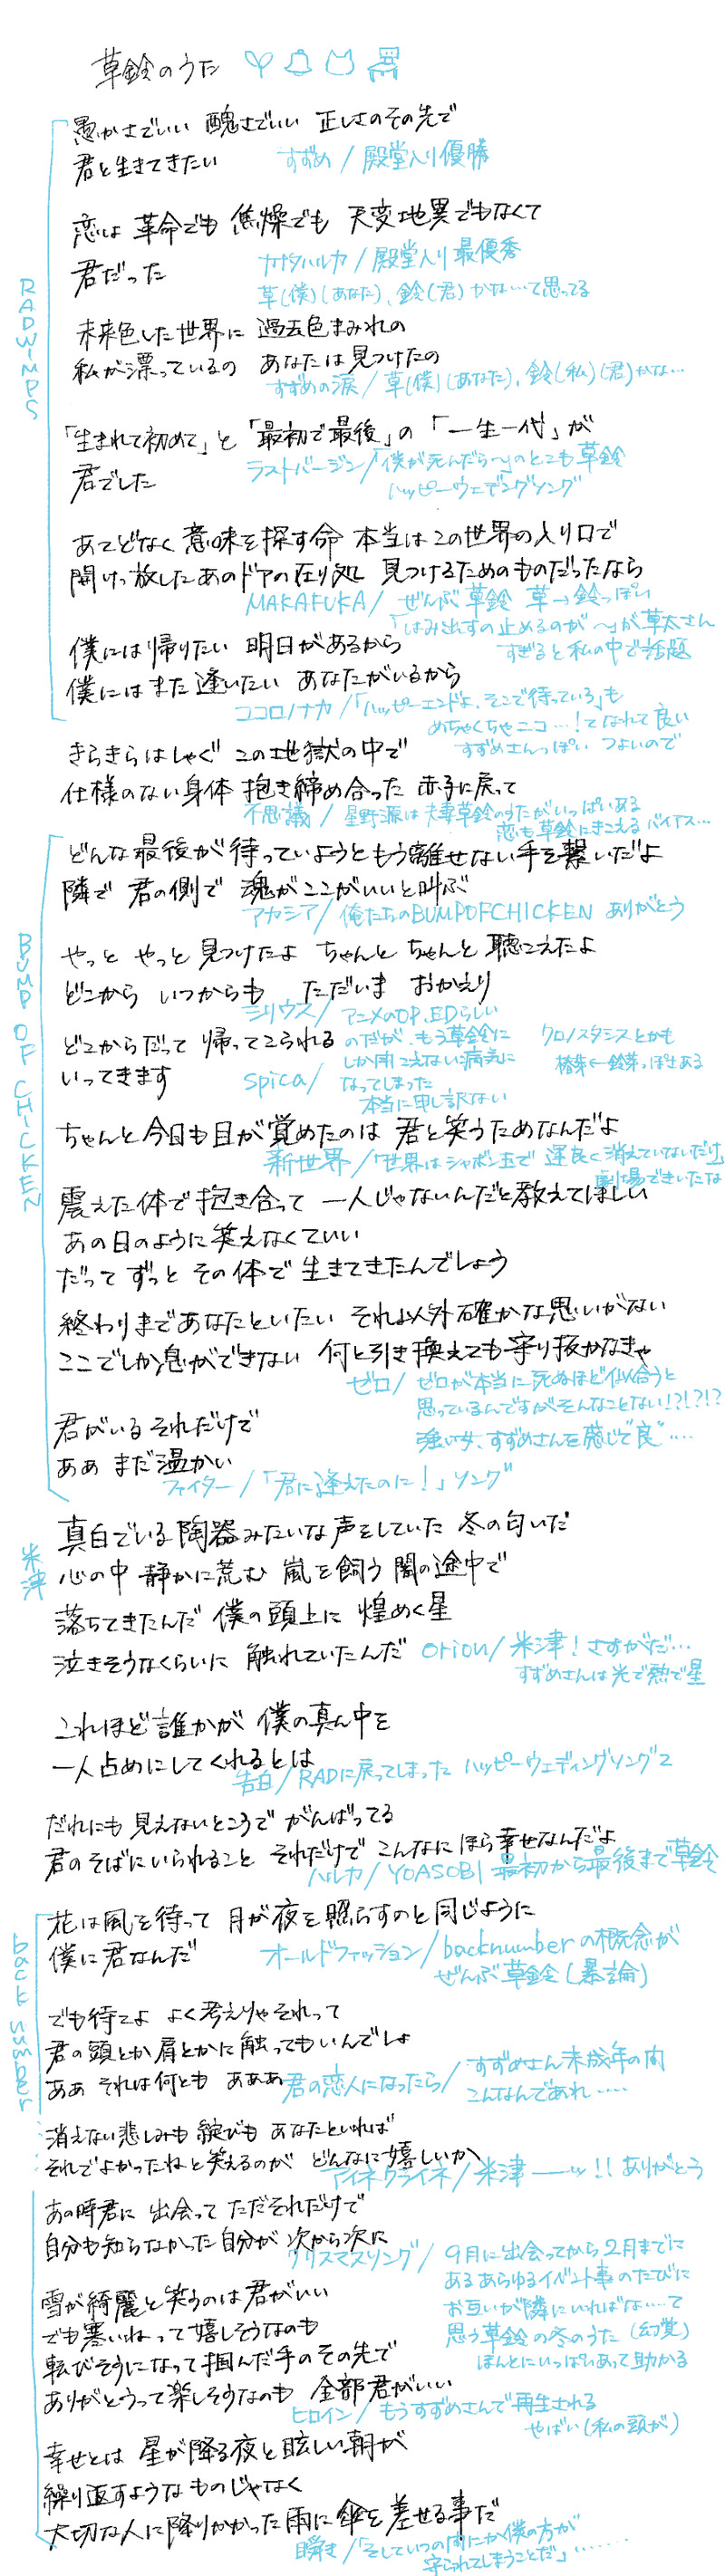 草鈴のうた
RADWIMPS
愚かさでいい 醜さでいい 正しさのその先で
君と生きてきたい
すずめ/殿堂入り優勝
恋は 革命でも 焦燥でも 天変地異でもなくて
君だった
カナタハルカ/殿堂入り最優秀
草(僕)(あなた)、鈴(君)かな…て思ってる
未来色した世界に 過去色まみれの
私が漂っているの あなたは見つけたの
すずめの涙/草(僕)(あなた)、鈴(私)(君)かな…
「生まれて初めて」と「最初で最後」の「一生一代」が
君でした
ラストバージン/「僕が死んだら〜」のとこも草鈴
ハッピーウェデングソング
あてどなく 意味を探す命 本当はこの世界の入り口で
開けっ放したあのドアの在り処 見つけるためのものだったなら
MAKAFUKA/ぜんぶ草鈴 草→鈴っぽい
「はみ出すの止めるのが〜」が草太さん
すぎると私の中で話題
僕には帰りたい 明日があるから
僕にはまた逢いたい あなたがいるから
ココロノナカ/「ハッピーエンドよ、そこで待っている」も
めちゃくちゃニコ…!てなれて良い
すずめさんっぽい つよいので
きらきらはしゃぐ この地獄の中で
仕様のない身体 抱き締め合った 赤子に戻って
不思議/星野源は夫妻草鈴のうたがいっぱいある
恋も草鈴にきこえるバイアス…
BUMP OF CHICKEN
どんな最後が待っていようともう離せない手を繋いだよ
隣で 君の側で 魂がここがいいと叫ぶ
アカシア/俺たちのBUMPOFCHICKENありがとう
やっと やっと 見つけたよ ちゃんと ちゃんと 聴こえたよ
どこから いつからも ただいま おかえり
シリウス/アニメのOP、EDらしい
どこからだって 帰ってこられる
のだが、もう草鈴に
クロノスタシスとかも
いってきます
しか聞こえない病気に
椿芽←鈴芽っぽさある
spica/なってしまった
本当に申し訳ない
ちゃんと今日も目が覚めたのは 君と笑うためなんだよ
新世界/「世界はシャボン玉で 運良く消えていないだけ」
劇場できいたな
震えた体で抱き合って 一人じゃないんだと教えてほしい
あの日のように笑えなくていい
だって ずっと その体で 生きてきたんでしょう
終わりまであなたといたい それ以外確かな思いがない
ここでしか息ができない 何と引き換えても守り抜かなきゃ
ゼロ/ゼロが本当に死ぬほど似合うと
思っているんですがそんなことない!?!?!?
強い女、すずめさんを感じて"良"‥‥
君がいる それだけで
ああ まだ温かい
ファイター/「君に逢えたのに!」ソング
米津
真白でいる 陶器みたいな声をしていた 冬の匂いだ
心の中 静かに荒む 嵐を飼う 闇の途中で
落ちてきたんだ 僕の頭上に 煌めく星
泣きそうなくらいに 触れていたんだ
orion/米津!さすがだ…
すずめさんは光で熱で星
これほど誰かが 僕の真ん中を
一人占めにしてくれるとは
告白/RADに戻ってしまった ハッピーウェディングソング2
だれにも見えないところで がんばってる
君のそばにいられること それだけで こんなに ほら幸せなんだよ
ハルカ/YOASOBI 最初から最後まで草鈴
back number
花は風を待って 月が夜を照らすのと同じように
僕に君なんだ
オールドファッション/backnumberの概念が
ぜんぶ草鈴(暴論)
でも待てよ よく考えりゃそれって
君の頭とか肩とかに触ってもいんでしょ
ああ それは何とも あああ
君の恋人になったら/すずめさん未成年の間
こんなんであれ‥‥‥
消えない悲しみも綻びも あなたといれば
それでよかったねと笑えるのが どんなに嬉しいか
アイネクライネ/米津ーーッ!!ありがとう
あの時君に 出会って ただそれだけで
自分も知らなかった自分が 次から次に
クリスマスソング/9月に出会ってから2月までに
あるあらゆるイベント事のたびに
お互いが隣にいればな‥‥て
思う草鈴の冬のうた(幻覚)
ほんとにいっぱいあって助かる
雪が綺麗と笑うのは君がいい
でも寒いねって嬉しそうなのも
転びそうになって掴んだ手のその先で
ありがとうって楽しそうなのも 全部君がいい
ヒロイン/もうすずめさんで再生される
やばい(私の頭が)
幸せとは 星が降る夜と眩しい朝が
繰り返すようなものじゃなく
大切な人に降りかかった雨に 傘を差せる事だ
瞬き/「そしていつの間にか僕の方が
守られてしまうことだ」‥‥‥